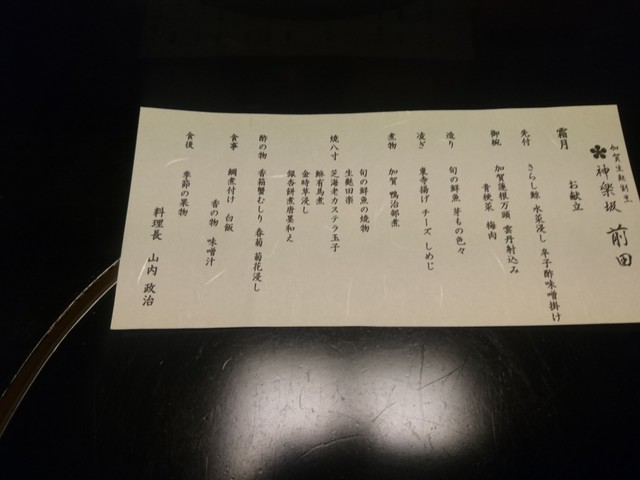 加賀生麩割烹
神楽坂 前田
霜月
お献立
先付 さらし鯨 水菜浸し 辛子酢味噌掛け
御椀 加賀蓮根万頭 雲丹射込み
青梗菜 梅肉
造り 旬の鮮魚 芽もの色々
凌ぎ 裏寺揚げ チーズ しめじ
煮物 加賀 鴨治部煮
焼八寸 旬の鮮魚の焼物
芝海老カステラ玉子
生麩田楽
鰊有馬煮
金時草浸し
銀杏餅煮唐墨和え
酢の物 香箱蟹むしり 春菊 菊花浸し
食事 鯛煮付け 白飯
香の物 味噌汁
食後 季節の果物
料理長 山内 政治